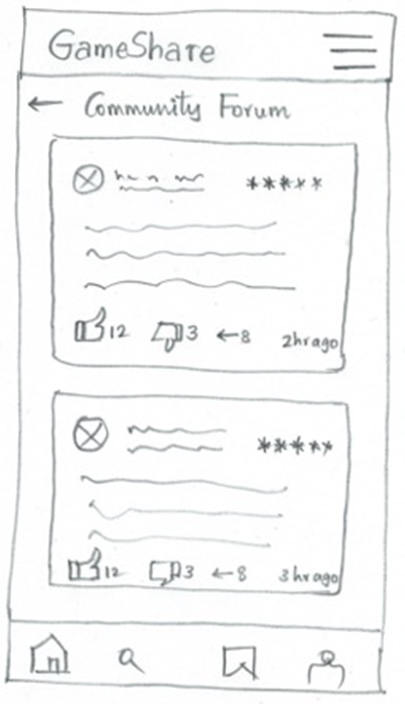 GameShare
← Community Forum
*****
12 3 ←8 2hr ago
*****
12 3 ←8 3hr ago